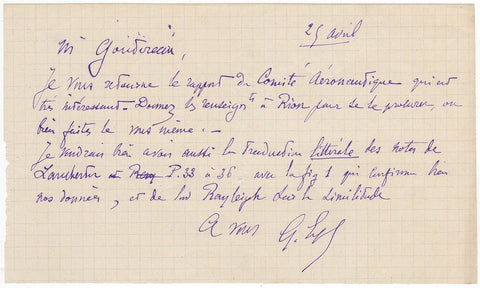 25 avril
Mr
Je vous retourne le rapport du Comité Aéronautique qui est
très intéressant Donnez les renseigts à Rion pour se le procurer, ou
bien faites le vous même. -
Je voudrais bien avoir aussi la traduction littérale des notes de
Lanchester et P. 33 à 36 avec la fig 1 qui confirme bien
nos données, et de lord Rayleigh sur la similitude
A vous G.